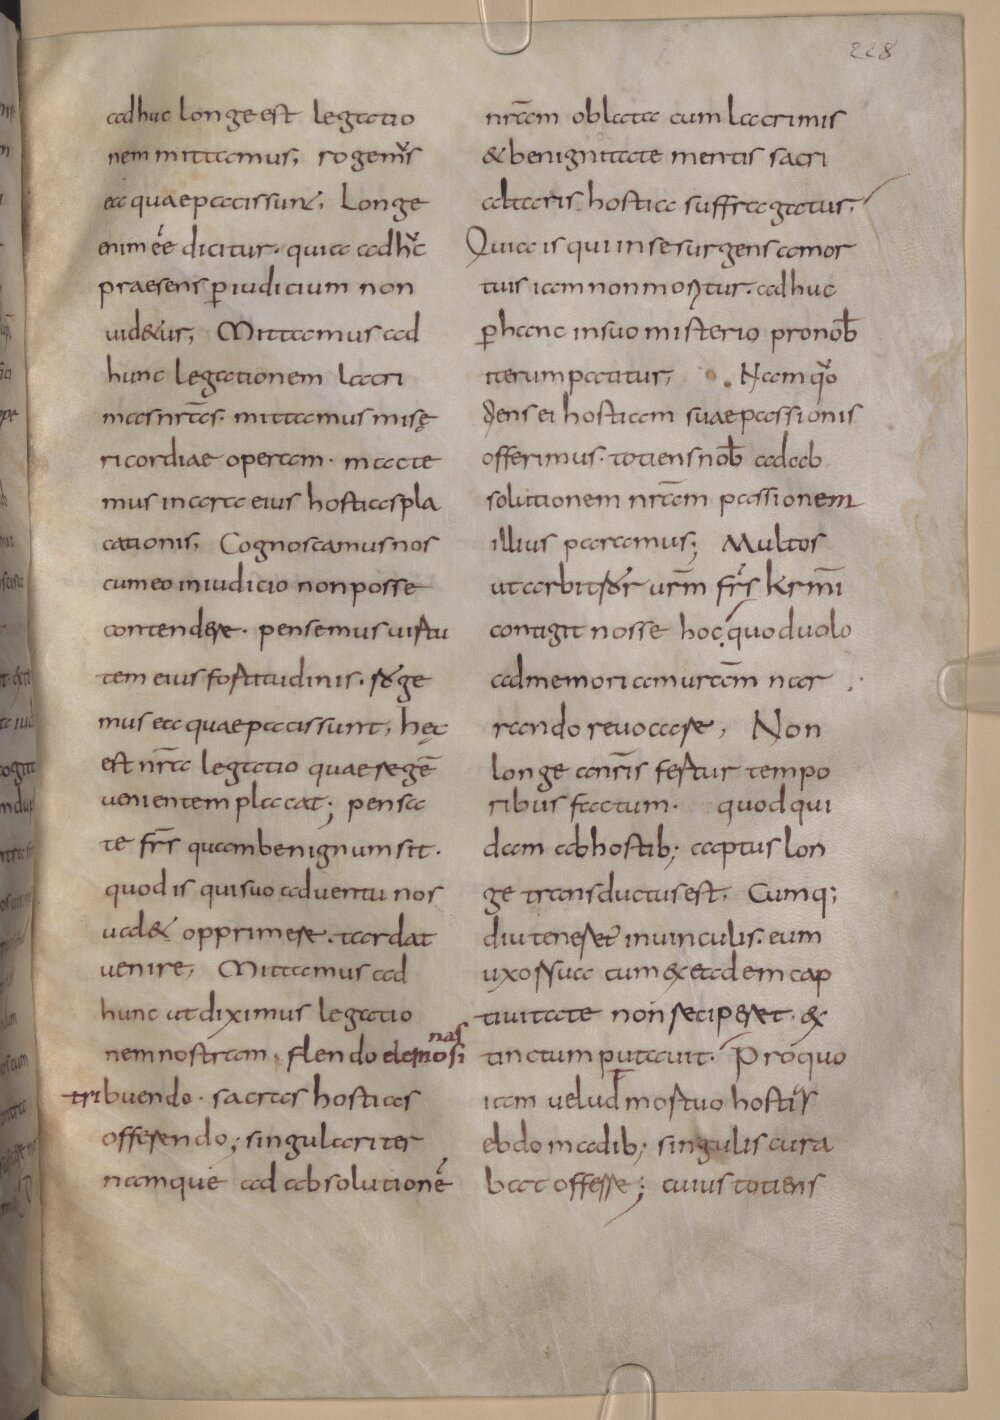 228
adhuc longe est legatio
nem mittamus, rogem᷒s
ea quae pacis sunt, Longe
enim ée dicitur. quia adhc̄
praesens ꝑ iudicium non
uid&ur, Mittamus ad
hunc legationem lacri
mas nr̄as. mittamus misę
ricordiae operam. macte
mus in ara eius hostias pla
cationis, Cognoscamus nos
cum eo in iudicio non posse
contendere. pensemus uirtu
tem eius fortitudinis. roge
mus ea quae pacis sunt, hęc
est nr̄a legatio quae regē
uenientem placat; pensa
te fr̄s quam benignum sit.
quod is qui suo aduentu nos
ual& opprimere. tardat
uenire, Mittamus ad
hunc ut diximus legatio
nem nostram. flendo elemosi
nas
tribuendo. sacras hostias
offerendo; singulariter
namque ad absolutionē
nr̄am oblata cum lacrimis
& benignitate mentis sacri
altaris hostia suffragatur,
Quia is qui in se surgens a mor
tuis iam non moritur. adhuc
ꝑ hanc in suo misterio pro nob̄
iterum patitur, Nam quo
tiens ei hostiam suae passionis
offerimus. totiens nob̄ ad ab
solutionem nr̄am passionem
illius paramus; Multos
ut arbitror urm̄ fr̄s krm̄i
contigit nosse hoc quod uolo
ad memoriam uram̄ nar
rando reuocare, Non
longe a nr̄is fertur tempo
ribus factum. quod qui
dam ab hostib; captus lon
ge transductus est, Cumq;
diu teneret᷒ in uinculis. eum
uxor sua cum ex eadem cap
tiuitate non reciperet. ex
tinctum putauit. Pro quo
iam uelud mortuo hostias
ebdomadib; singulis cura
bat offerre; cuius totiens